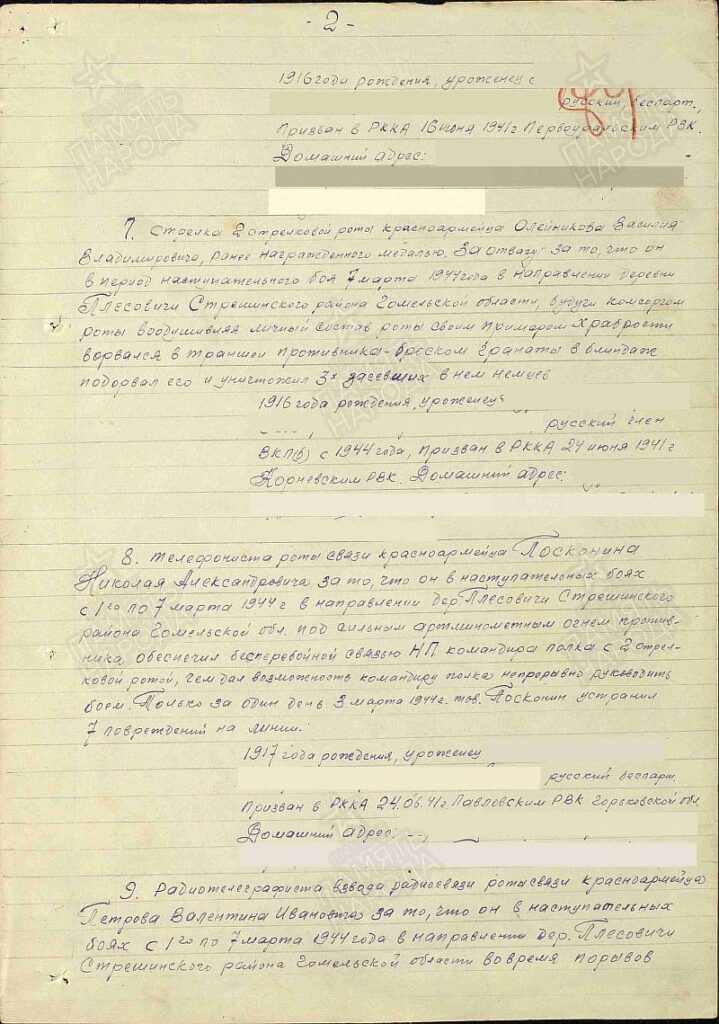 - 2 -
1916 года рождения, уроженец с
русский, беспарт.,
Призван в РККА 16 июня 1941 г Первоуральским РВК.
Домашний адрес:
7. Стрелка 2 стрелковой роты красноармейца Олейникова Василия
Владимировича, ранее награжденного медалью "За отвагу" за то, что он
в период наступательного боя 7 марта 1944 года в направлении деревни
Плесовичи Стрешинского района Гомельской области, будучи комсоргом
роты воодушевляя личный состав роты своим примером храбрости
ворвался в траншеи противника - броском гранаты в блиндаж
подорвал его и уничтожил 3х засевших в нем немцев
1916 года рождения, уроженец
русский член
ВКП(б) с 1944 года, призван в РККА 24 июня 1941 г
РВК. Домашний адрес:
8. Телефониста роты связи красноармейца Посконина
Николая Александровича за то, что он в наступательных боях
с 1го по 7 марта 1944 г в направлении дер. Плесовичи Стрешинского
района Гомельской обл. под сильным артминометным огнем против-
ника обеспечил бесперебойной связью НП командира полка с 2 стрел-
ковой ротой, чем дал возможность командиру полка непрерывно руководить
боем. Только за один день 3 марта 1944 г. тов. Посконин устранил
7 повреждений на линии.
1917 года рождения, уроженец
русский беспарт.
Призван в РККА 24.06.41 г. Павловским РВК Горьковской обл
Домашний адрес:
9. Радиотелеграфиста взвода радиосвязи роты связи красноармейца
Петрова Валентина Ивановича за то, что он в наступательных
боях с 1го по 7 марта 1944 года в направлении дер. Плесовичи
Стрешинского района Гомельской области во время порывов